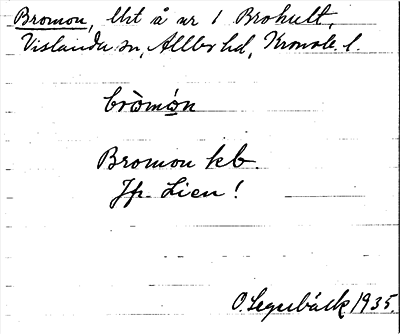 Bromon, lht å nr 1 Brohult,
Vislanda sn, Allbo hd, Kronob. l.
bròmón
Bromon kb.
Jfr Lien!
O. Legnebäck 1935.